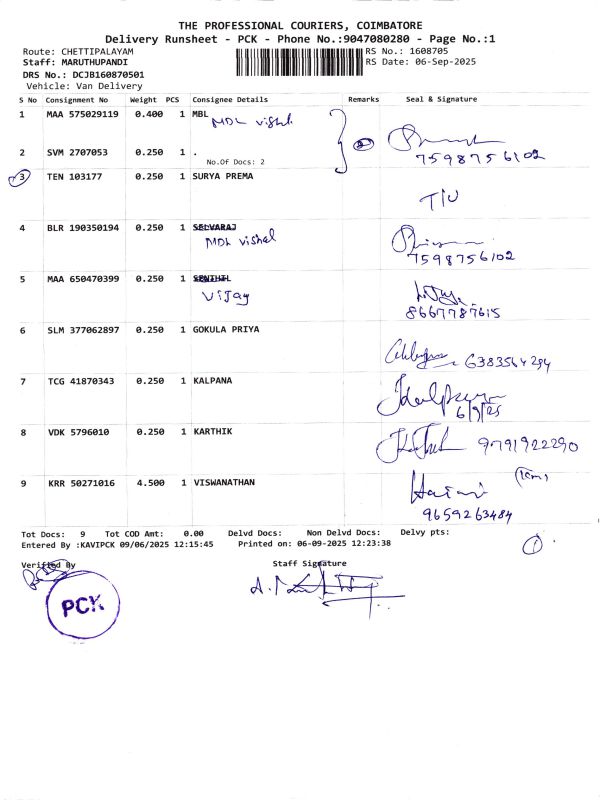 THE PROFESSIONAL COURIERS, COIMBATORE
Delivery Runsheet - PCK - Phone No.:9047080280 - Page No.:1
Route: CHETTIPALAYAM
Staff: MARUTHUPANDI
DRS No.: DCJB160870501
Vehicle: Van Delivery
RS No.: 1608705
RS Date: 06-Sep-2025
S No Consignment No Weight PCS Consignee Details Remarks Seal & Signature
1 MAA 575029119 0.400 1 MBL
MDL vishal
2 SVM 2707053 0.250 1 .
No.Of Docs: 2
7598756102
3 TEN 103177 0.250 1 SURYA PREMA
4 BLR 190350194 0.250 1 SELVARAJ
MDL vishal
7598756102
5 MAA 650470399 0.250 1 SENTHIL
Vijay
8667787615
6 SLM 377062897 0.250 1 GOKULA PRIYA
6383564294
7 TCG 41870343 0.250 1 KALPANA
6/9/25
8 VDK 5796010 0.250 1 KARTHIK
9791922290
9 KRR 50271016 4.500 1 VISWANATHAN
9659263484
Tot Docs: 9 Tot COD Amt: 0.00 Delvd Docs: Non Delvd Docs: Delvy pts:
Entered By :KAVIPCK 09/06/2025 12:15:45 Printed on: 06-09-2025 12:23:38
1
Verified By Staff Signature
PCK